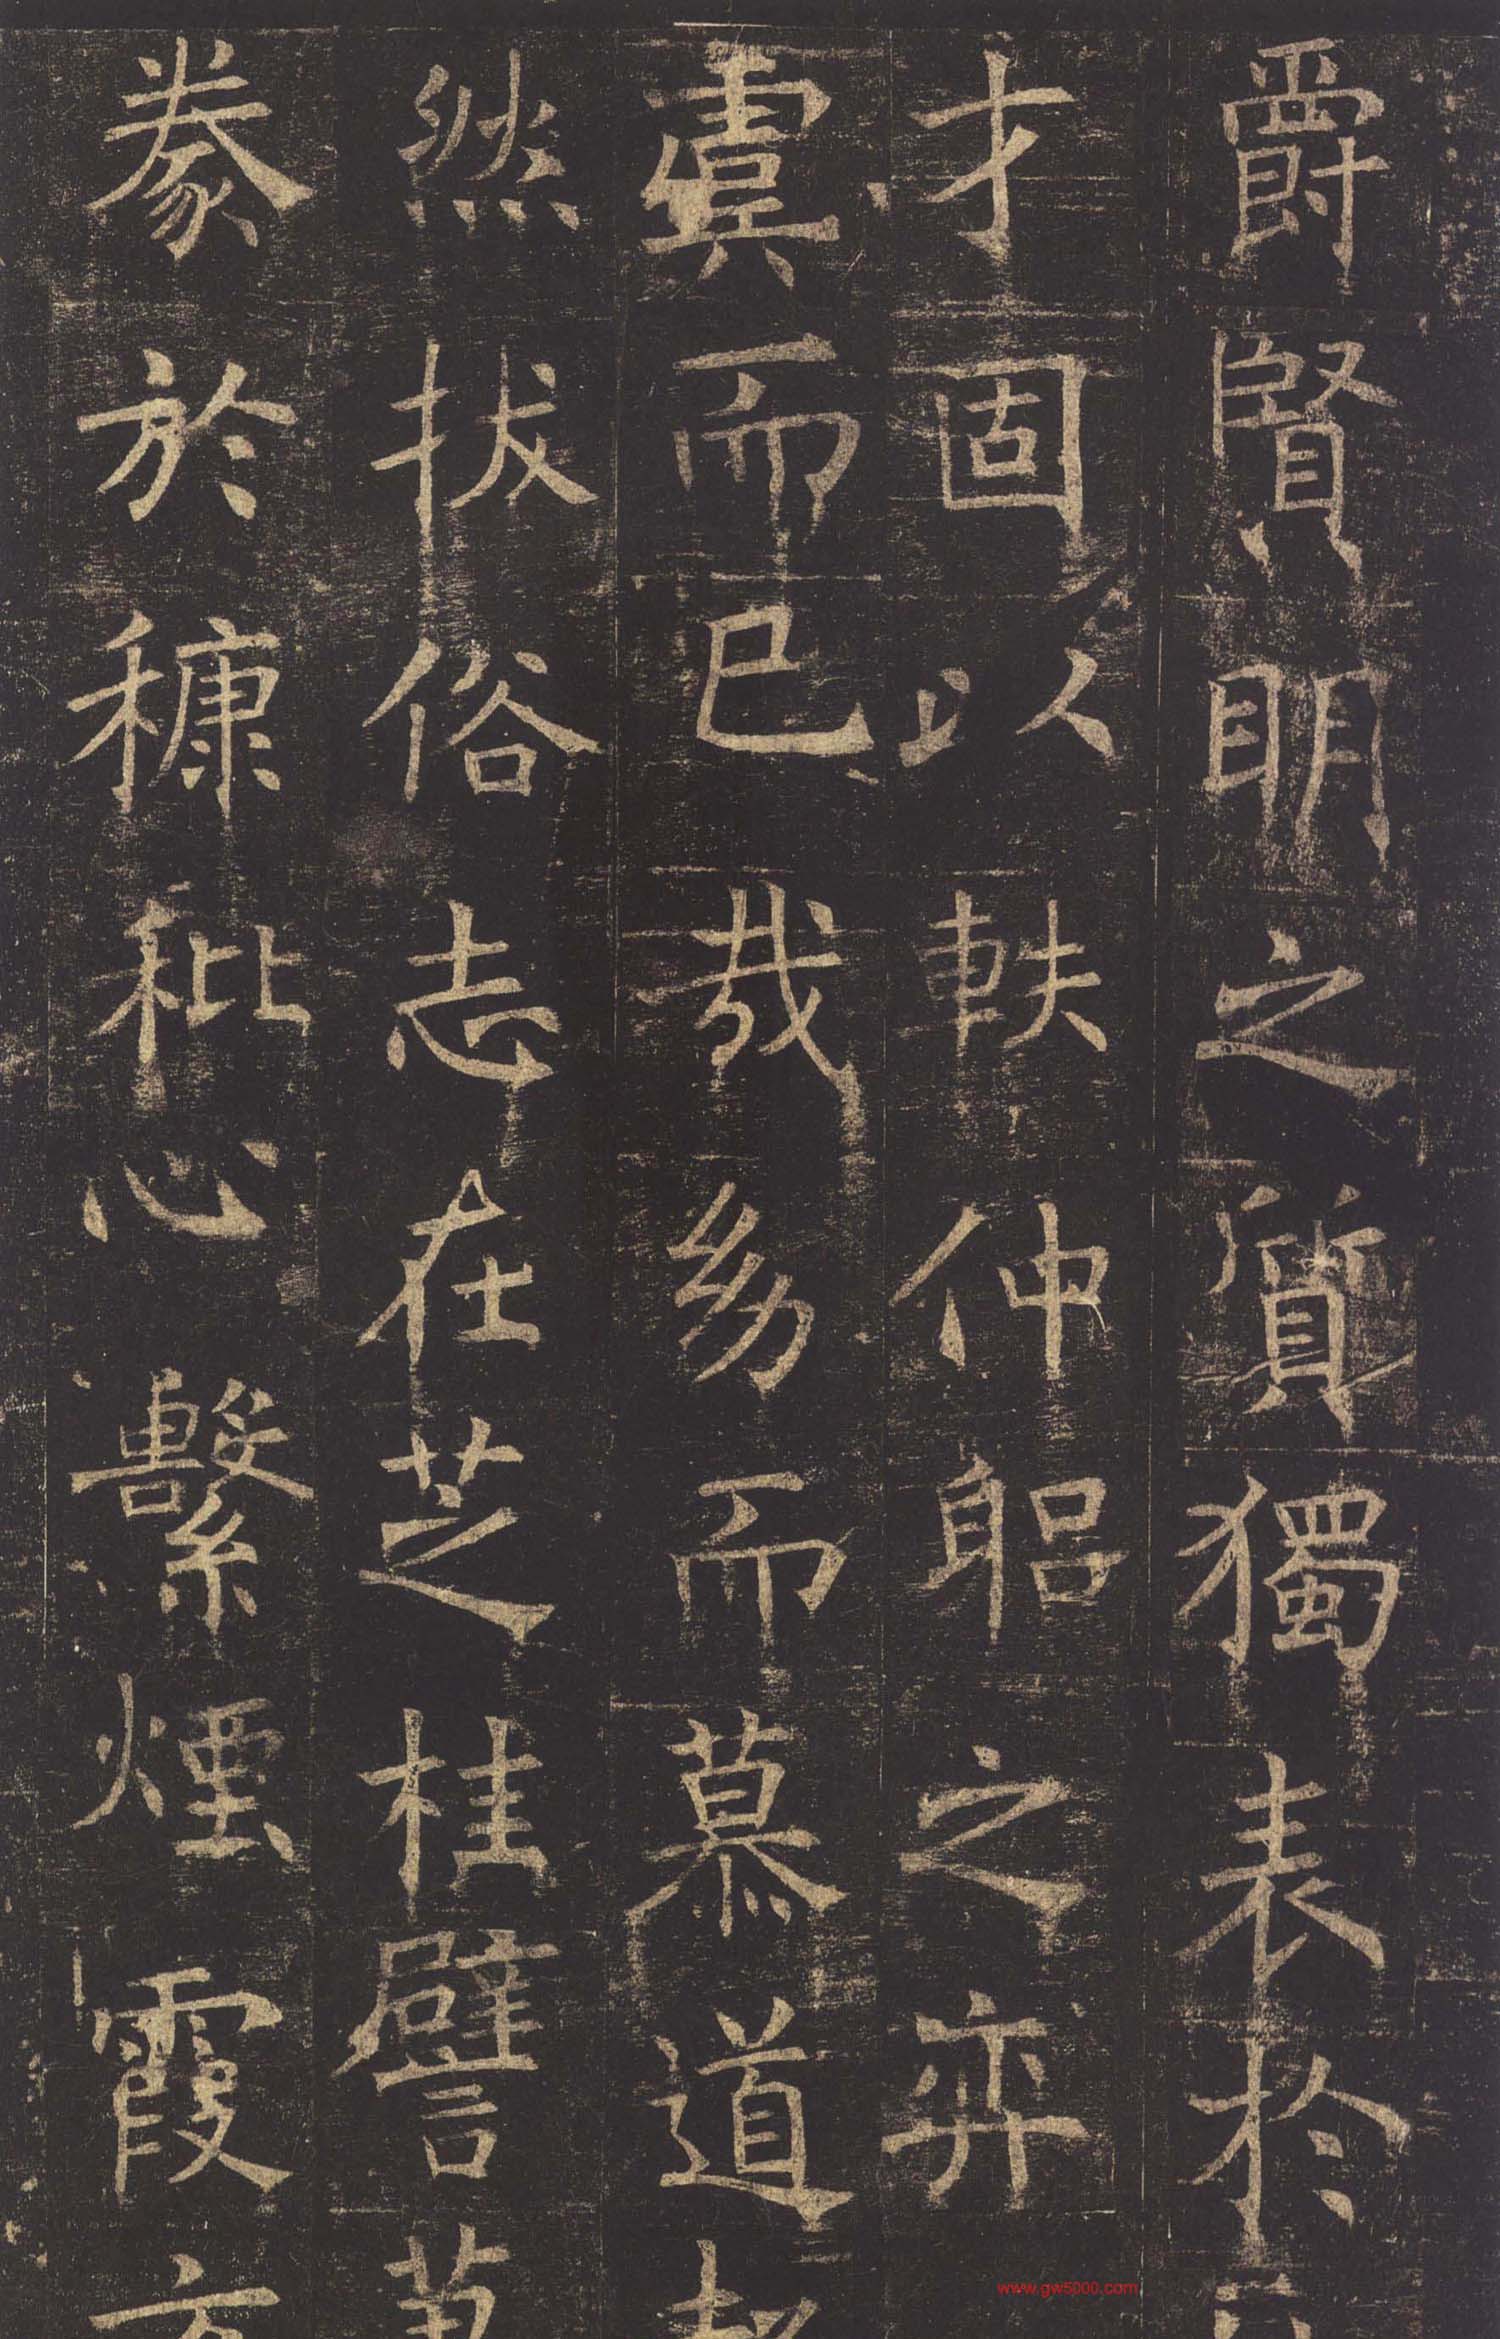 爵賢明之質獨表於
才固以軼仲躳之弈
虞而已哉幼而慕道
然拔俗志在芝桂譬
豢於穅秕心繫煙霞
www.gw5000.com